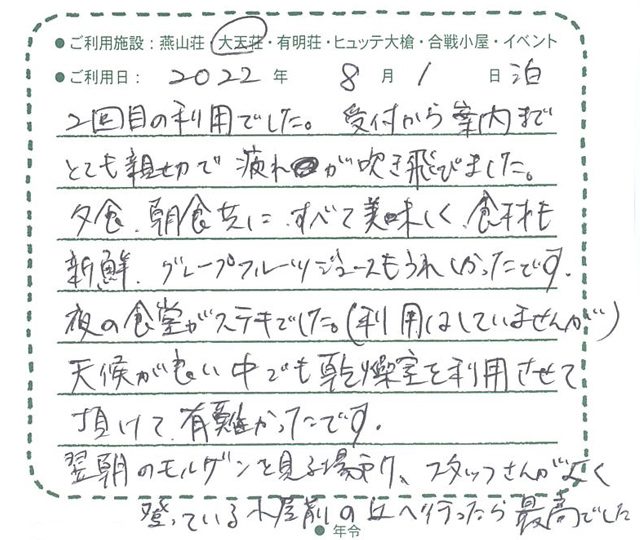 ●ご利用施設：燕山荘・大天荘・有明荘・ヒュッテ大槍・合戦小屋・イベント
●ご利用日：2022年 8月 1日泊
2回目の利用でした。受付から案内まで
とても親切で疲れが吹き飛びました。
夕食、朝食共に、すべて美味しく、食材も
新鮮、グレープフルーツジュースもうれしかったです。
夜の食堂がステキでした。(利用はしていませんが)
天候が良い中でも乾燥室を利用させて
頂けて、有難かったです。
翌朝のモルゲンを見る場所、スタッフさんがよく
登っている小屋前の丘へ行ったら最高でした
●年令